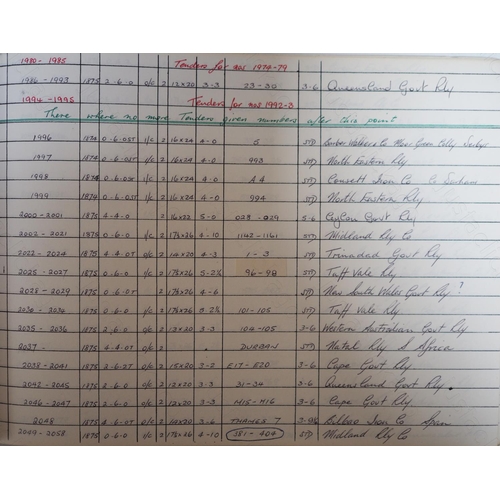 1980 - 1985 Tenders for nos 1974-79
1986 - 1993 1875 2-6-0 o/c 2 12x20 3-3 23-30 3-6 Queensland Govt Rly
1994 - 1995 Tenders for nos 1992-3
There where no more Tenders given numbers after this point
1996 1874 0-6-0ST I/C 2 16x24 4-0 5 STD Walkers Co Moor Green Colly
1997 1874 0-6-0ST I/C 2 16x24 4-0 993 STD North Eastern Rly
1998 1874 0-6-0ST I/C 2 16x24 4-0 A4 STD Consett Iron Co Co Durham
1999 1874 0-6-0ST I/C 2 16x24 4-0 994 STD North Eastern Rly
2000 - 2001 1875 4-4-0 2 16x22 5-0 028-029 5-6 Ceylon Govt Rly
2002 - 2021 1875 0-6-0 I/C 2 17½x26 4-10 1142-1161 STD Midland Rly Co
2022 - 2024 1875 4-4-0T o/c 2 14x20 4-3 1-3 STD Trinadad Govt Rly
2025 - 2027 1875 0-6-0 I/C 2 17½x26 5-2½ 96-98 STD Taff Vale Rly
2028 - 2029 1875 0-6-0 2 17½x26 4-6 STD New South Wales Govt Rly ?
2030 - 2034 1875 0-6-0 I/C 2 17½x26 5-2½ 101-105 STD Taff Vale Rly
2035 - 2036 1875 2-6-0 o/c 2 12x20 3-3 104-105 3-6 Western Australian Govt Rly
2037 1875 4-4-0T o/c 2 DURBAN STD Natal Rly S Africa
2038 - 2041 1875 2-6-2T o/c 2 15x20 3-2 E17-E20 3-6 Cape Govt Rly
2042 - 2045 1875 2-6-0 o/c 2 12x20 3-3 31-34 3-6 Queensland Govt Rly.
2046 - 2047 1875 2-6-0 o/c 2 12x20 3-3 M15-M16 3-6 Cape Govt Rly.
2048 1875 4-4-0T o/c 2 14x20 3-6 THAMES 7 Bilbao Iron Co Spain
2049 - 2058 1875 0-6-0 I/C 2 17½x26 4-10 381-404 STD Midland Rly Co